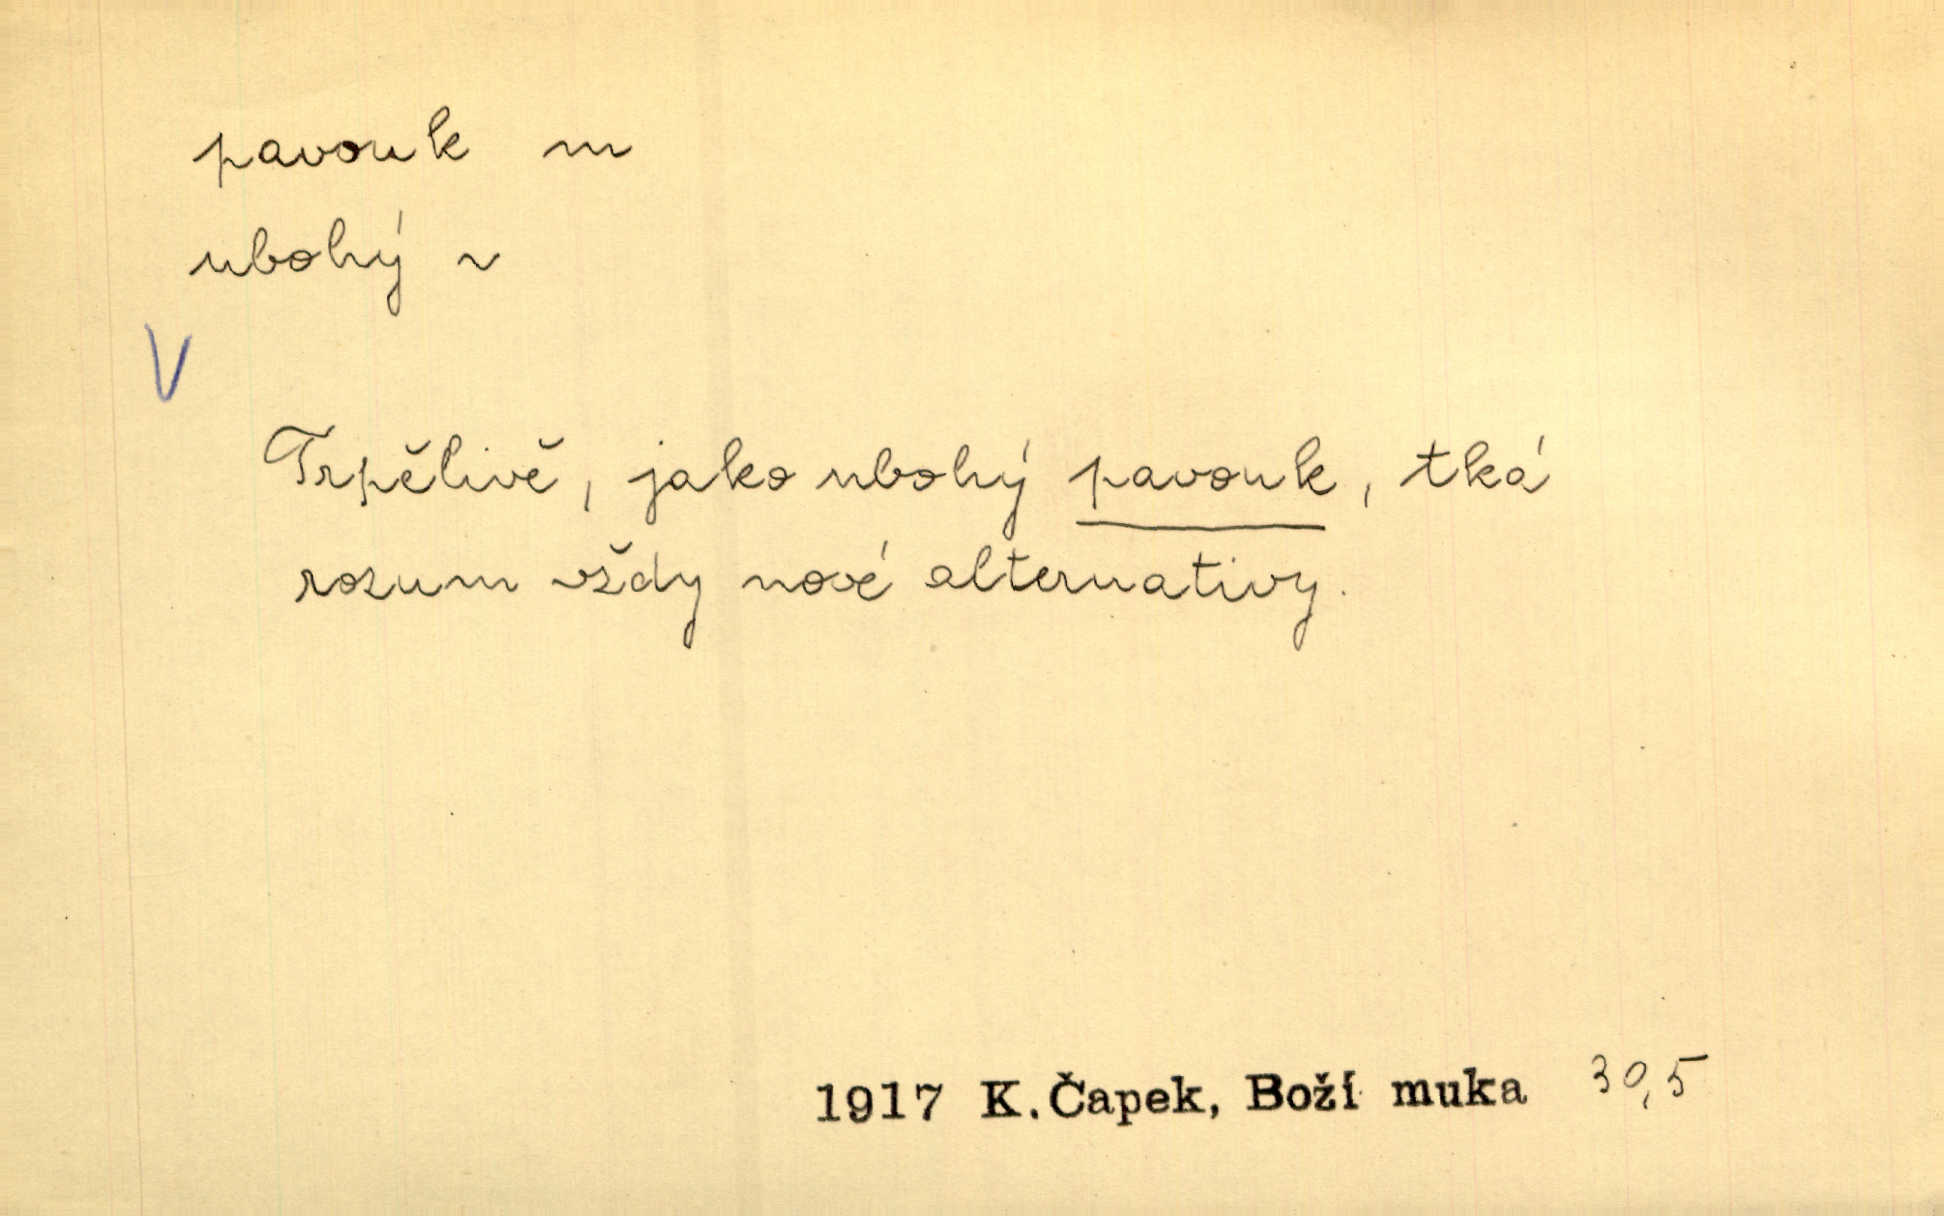 pavouk m
ubohý ~
V
Trpělivě, jako ubohý pavouk, tká
rozum vždy nové alternativy.
1917 K. Čapek, Boží muka 30,5